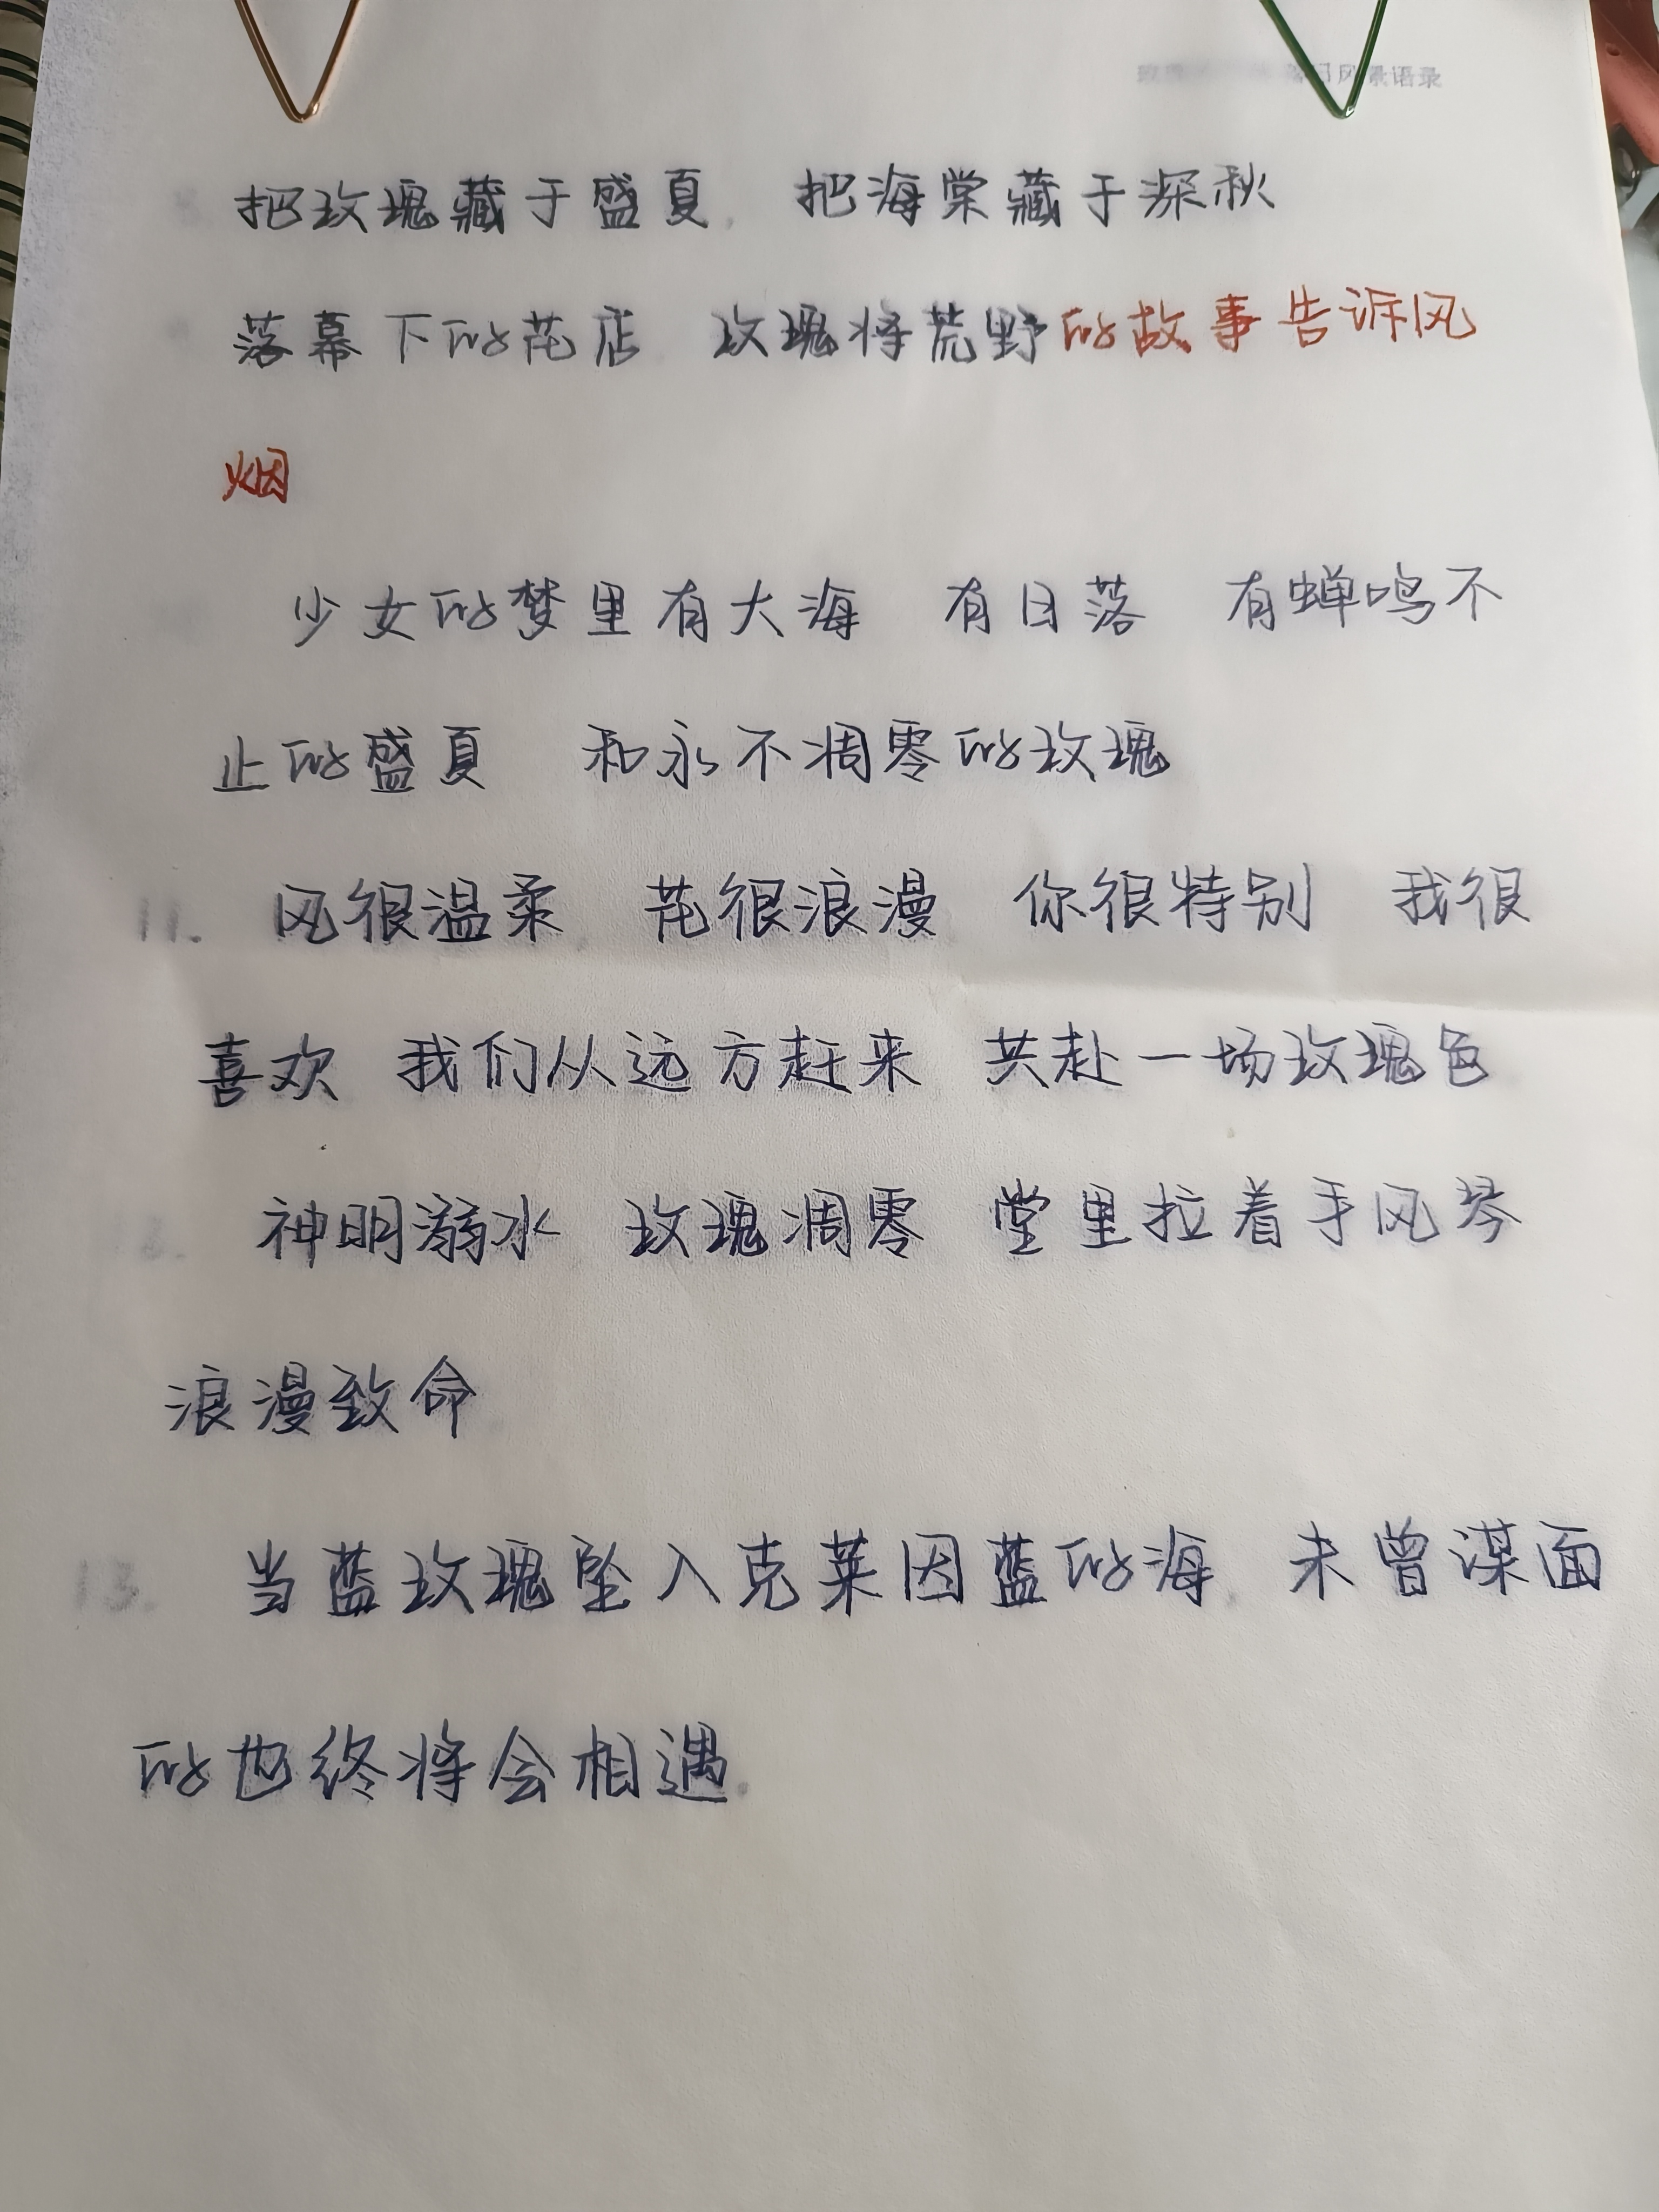 景语录
把玫瑰藏于盛夏 把海棠藏于深秋
落幕下的花店 玫瑰将荒野的故事告诉风
烟
少女的梦里有大海 有日落 有蝉鸣不
止的盛夏 和永不凋零的玫瑰
11. 风很温柔 花很浪漫 你很特别 我很
喜欢 我们从远方赶来 共赴一场玫瑰色
神明溺水 玫瑰凋零 堂里拉着手风琴
浪漫致命
13. 当蓝玫瑰坠入克莱因蓝的海 未曾谋面
的也终将会相遇